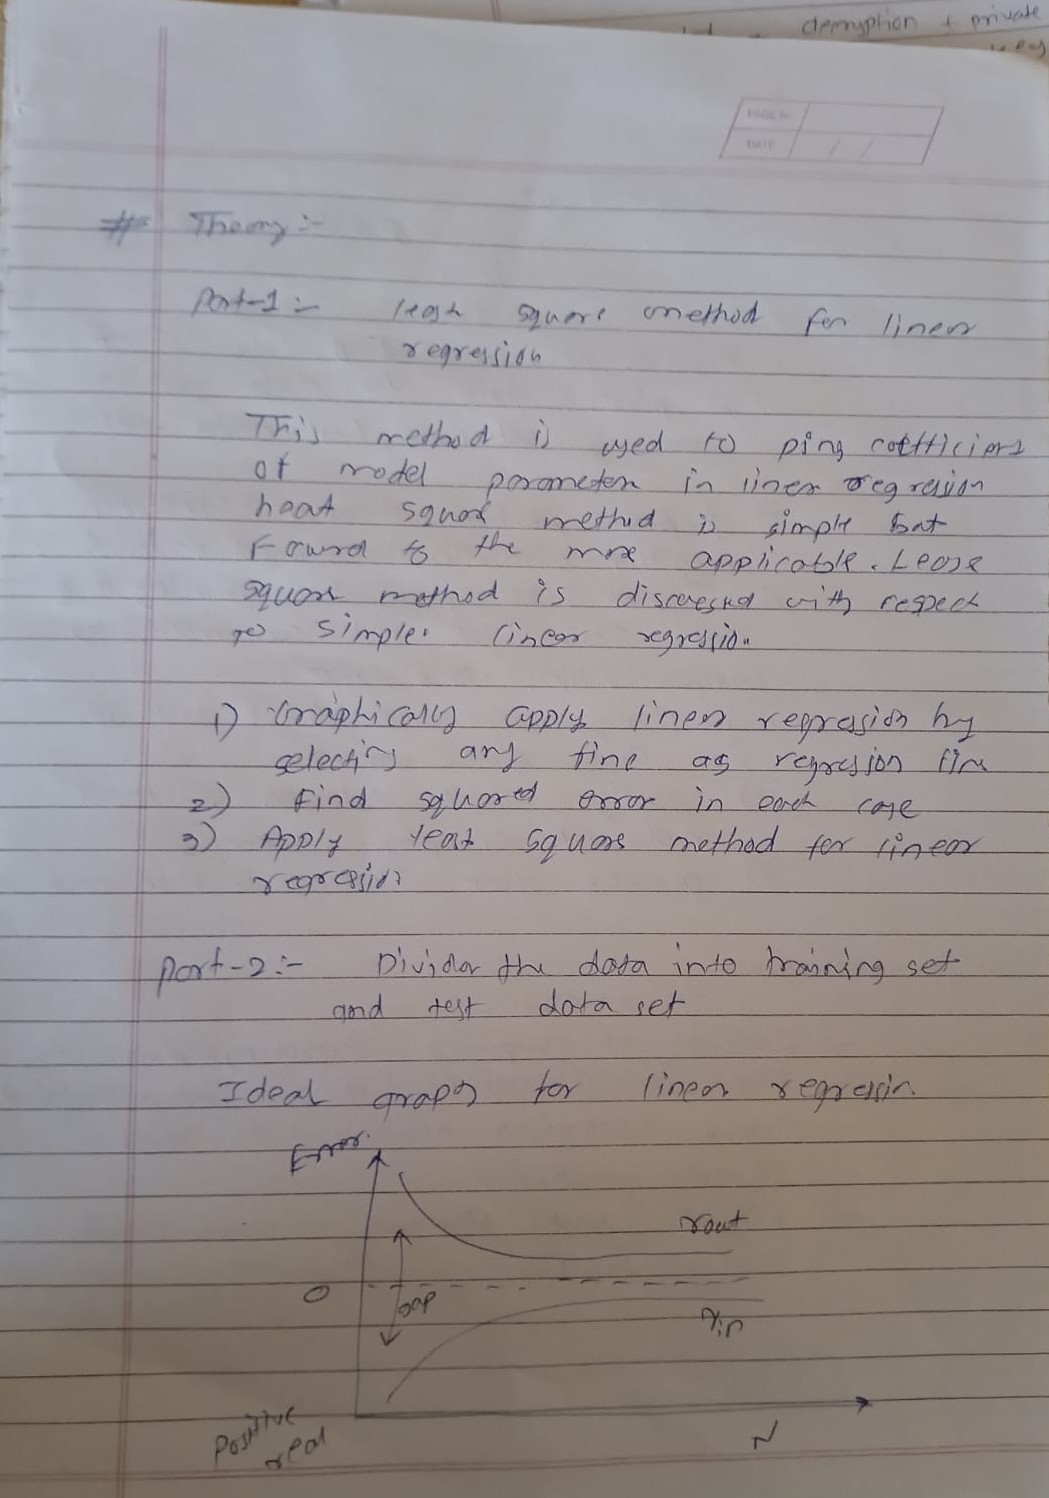 decryption + private
key
PAGE NO.
DATE / /
# Theory :-
Part-1 :- least square method for linear
regression
This method is used to ping coefficients
of model parameter in linear regression
heat square method is simple but
Foward to the more applicable. Lease
square method is discussed with respect
to simple linear regression.
1) Graphically apply linear regression by
selecting any fine as regression line
2) Find squared error in each case
3) Apply least square method for linear
regression
Part-2 :- Divider the data into training set
and test data set
Ideal graph for linear regression.
Error
rout
O
gap
rin
Positive
real
N